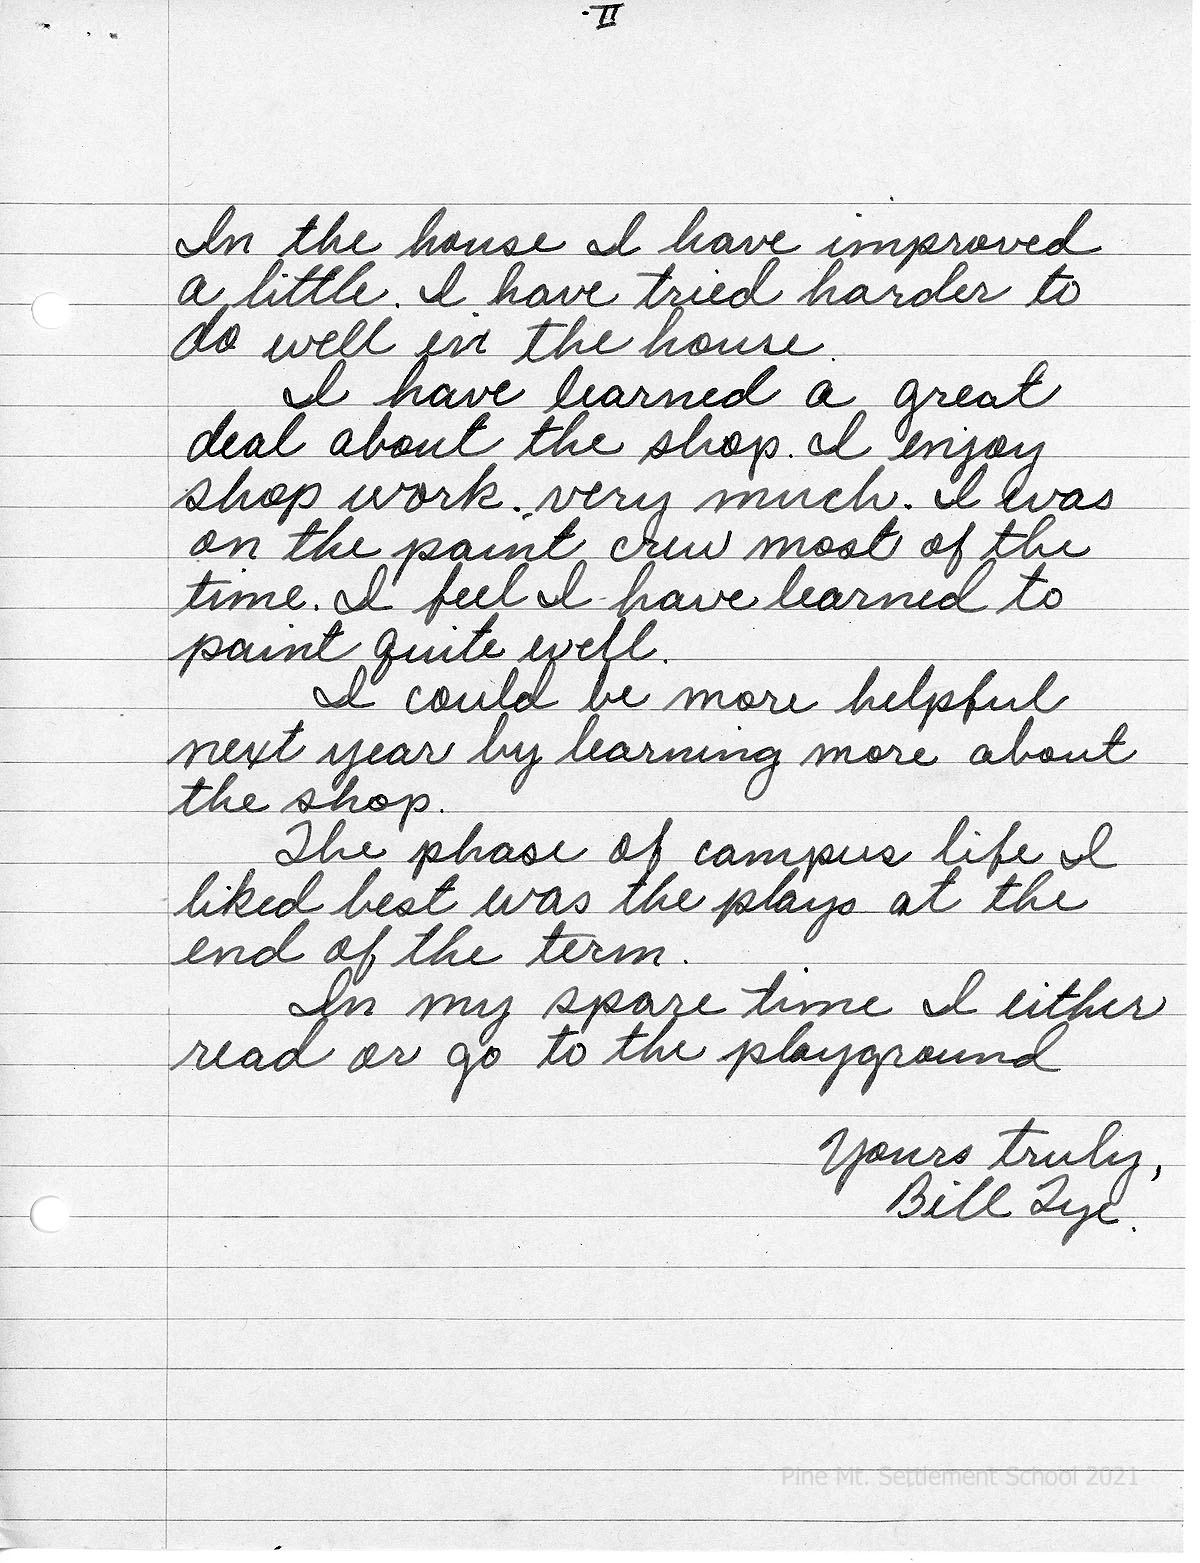 II
In the house I have improved
a little. I have tried harder to
do well in the house.
I have learned a great
deal about the shop. I enjoy
shop work. very much. I was
on the paint crew most of the
time. I feel I have learned to
paint quite well.
I could be more helpful
next year by learning more about
the shop.
The phase of campus life I
liked best was the plays at the
end of the term.
In my spare time I either
read or go to the playground
Yours truly,
Bill Tye.
Pine Mt. Settlement School 2021